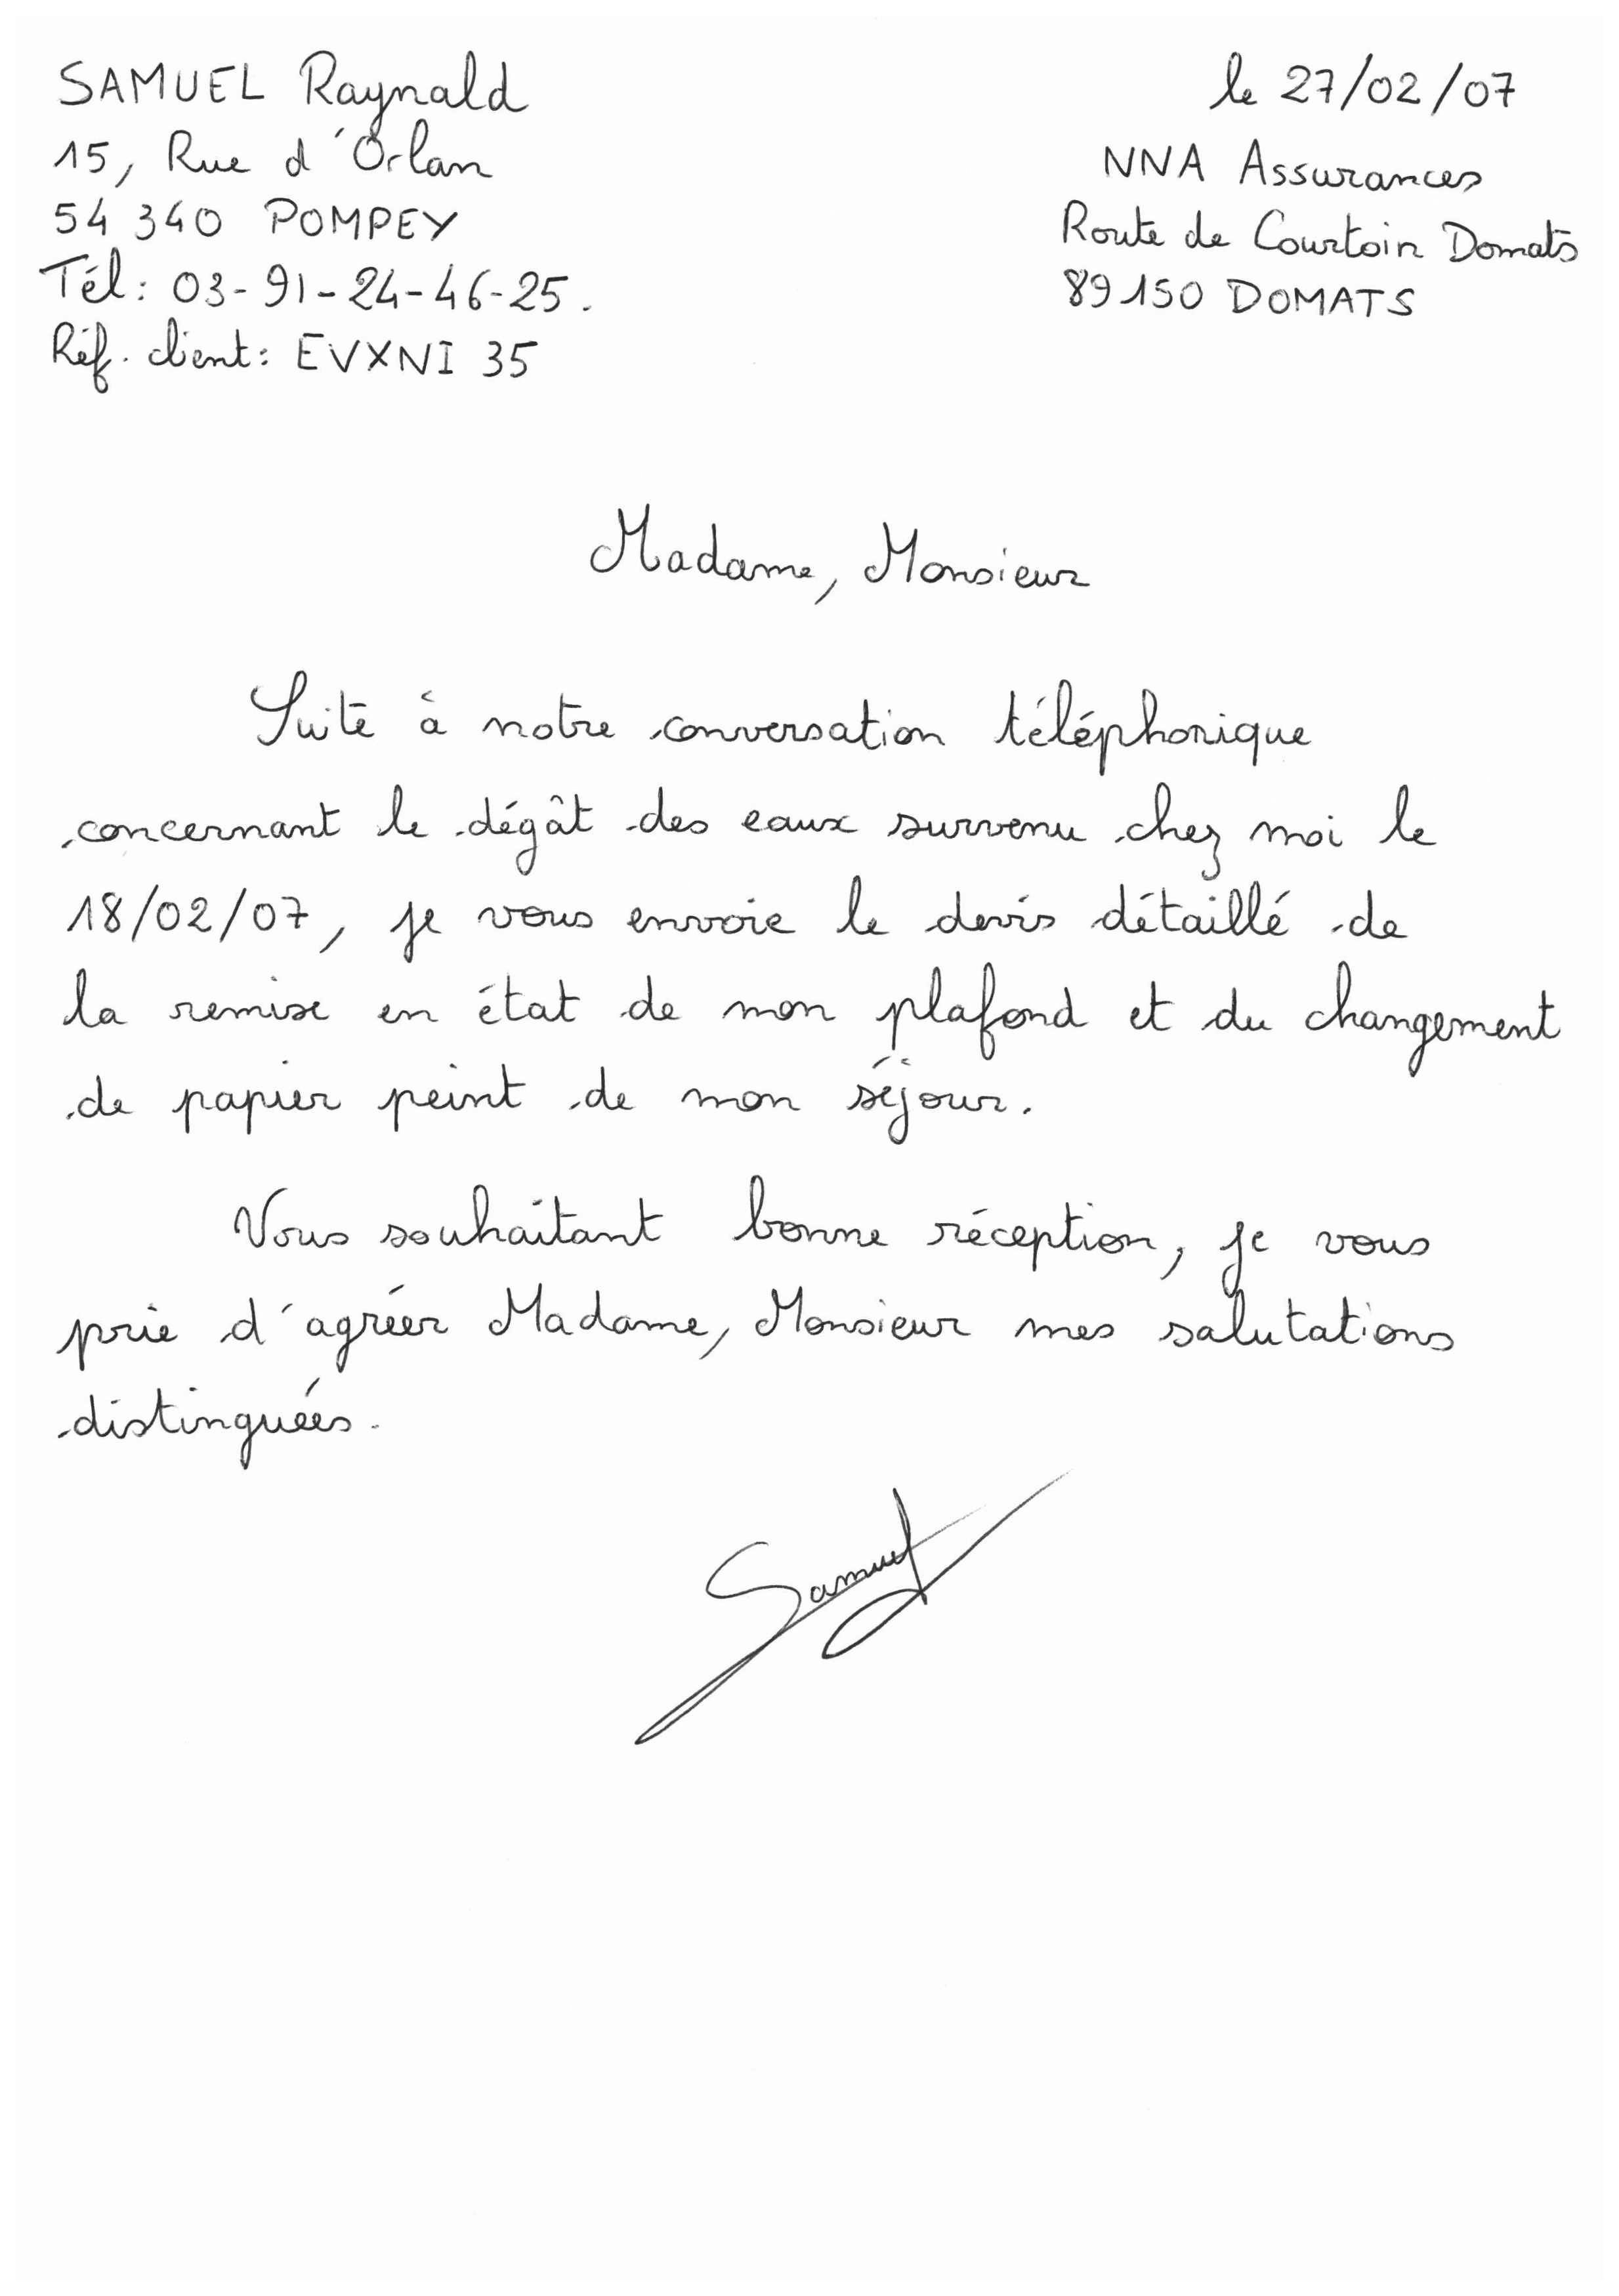 SAMUEL Raynald
15, Rue d'Orlan
54 340 POMPEY
Tél: 03-91-24-46-25.
Réf. client: EVXNI 35
le 27/02/07
NNA Assurances
Route de Courtoin Domats
89150 DOMATS
Madame, Monsieur
Suite à notre conversation téléphonique
concernant le dégât des eaux survenu chez moi le
18/02/07, je vous envoie le devis détaillé de
la remise en état de mon plafond et du changement
de papier peint de mon séjour.
Vous souhaitant bonne réception, je vous
prie d'agréer Madame, Monsieur mes salutations
distinguées.
Samuel